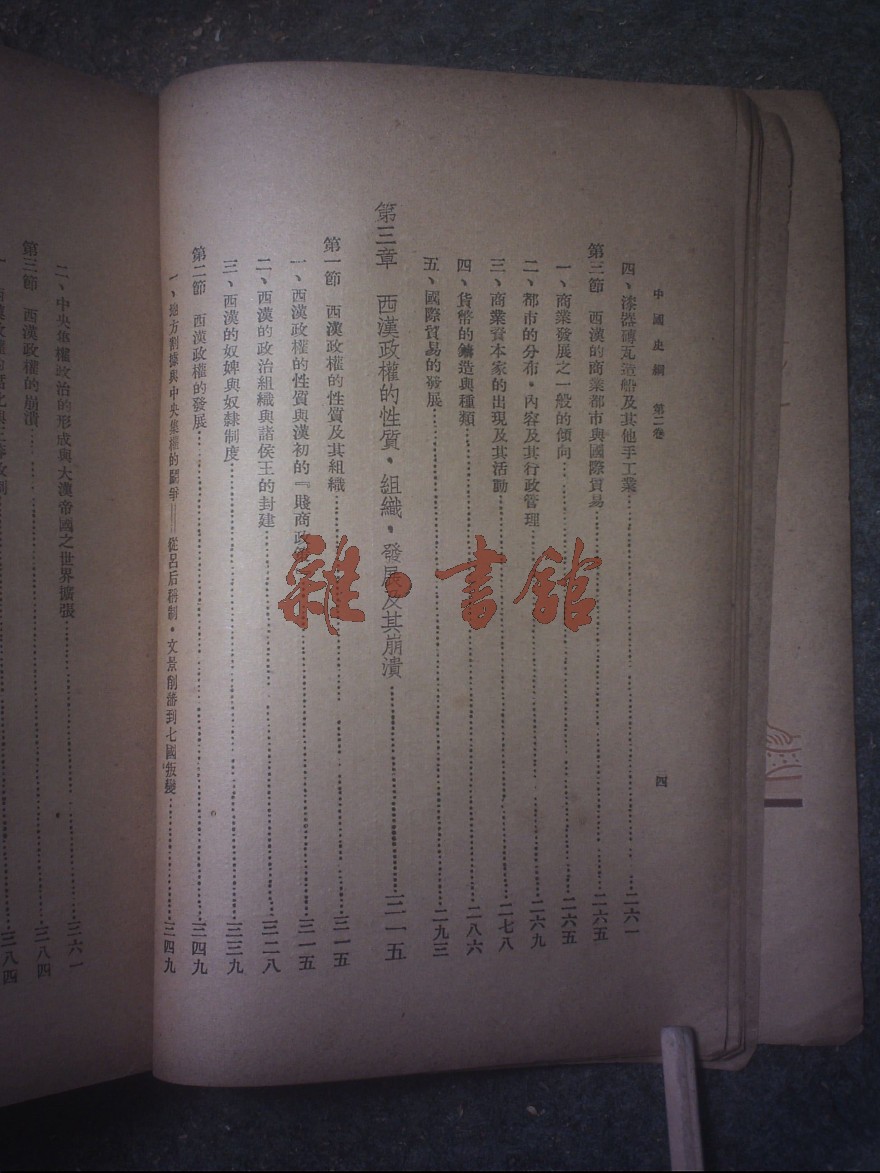 中國史綱　第二卷
四
四、漆器磚瓦造船及其他手工業……二六一
第三節　西漢的商業都市與國際貿易……二六五
一、商業發展之一般的傾向……二六五
二、都市的分布・內容及其行政管理……二六九
三、商業資本家的出現及其活動……二七八
四、貨幣的鑄造與種類……二八六
五、國際貿易的發展……二九三
第三章　西漢政權的性質、組織、發展及其崩潰……三一五
第一節　西漢政權的性質及其組織……三一五
一、西漢政權的性質與漢初的『賤商政……三一五
二、西漢的政治組織與諸侯王的封建……三二八
三、西漢的奴婢與奴隸制度……三三九
第二節　西漢政權的發展……三四九
一、地方割據與中央集權的鬥爭——從呂后稱制・文景削藩到七國叛變……三四九
二、中央集權政治的形成與大漢帝國之世界擴張……三六一
第三節　西漢政權的崩潰……三八四
一、西漢政權的……三八四
雜・書館